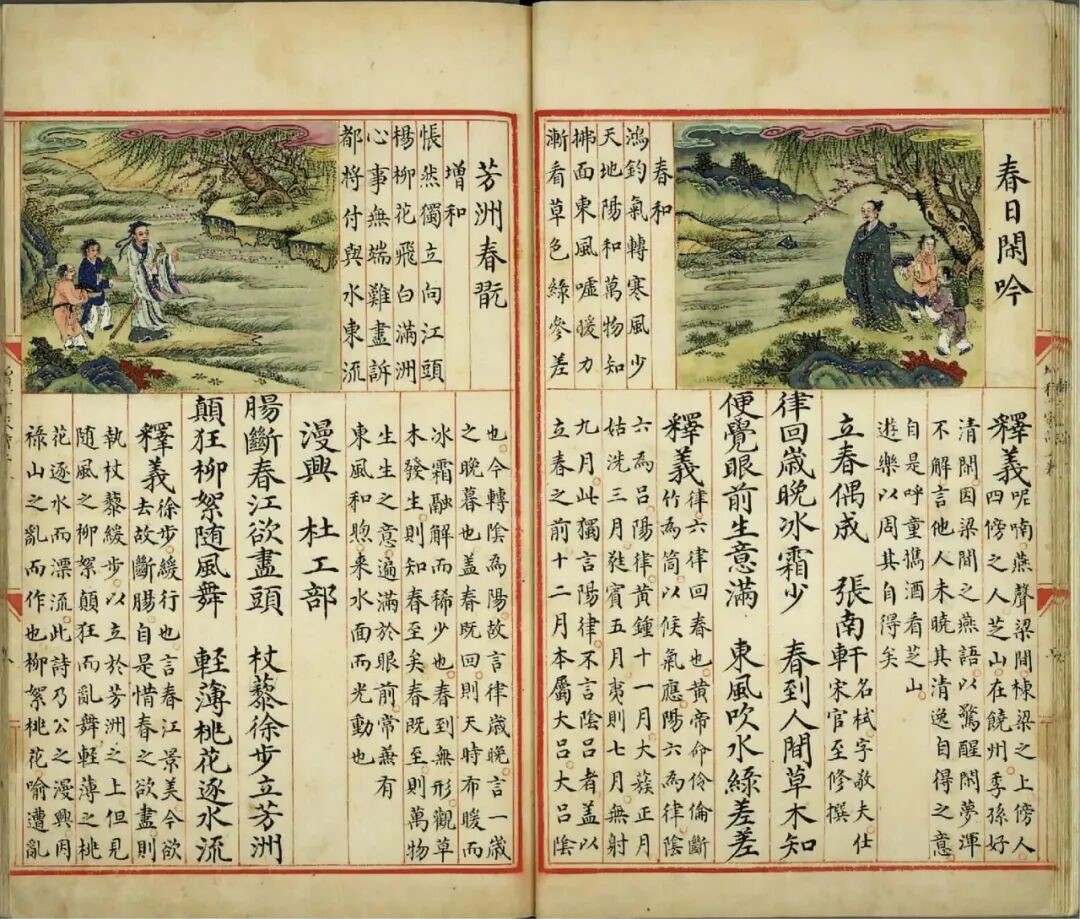 春日閑吟
春和
鴻鈞氣轉寒風少
天地陽和萬物知
拂面東風噓暖力
漸看草色綠參差
釋義 呢喃燕聲梁間棟梁之上傍人
四傍之人芝山在饒州季孫好
清閑因梁間之燕語以驚醒閑夢渾
不解言他人未曉其清逸自得之意
自是呼童攜酒看芝山
遊樂以周其自得矣
立春偶成 張南軒 名栻字敬夫仕
宋官至修撰
律回歲晚冰霜少 春到人間草木知
便覺眼前生意滿 東風吹水綠差差
釋義 律六律回春也黃帝命伶倫斷
竹為筒以候氣應陽六為律陰
六為呂陽律黃鍾十一月大蔟正月
姑洗三月蕤賓五月夷則七月無射
九月此獨言陽律不言陰呂者蓋以
立春之前十二月本屬大呂大呂陰
芳洲春翫
增和
悵然獨立向江頭
楊柳花飛白滿洲
心事無端難盡訴
都將付與水東流
也今轉陰為陽故言律歲晚言一歲
之晚暮也蓋春既回則天時布暖而
冰霜融解而稀少也春到無形觀草
木發生則知春至矣春既至則萬物
生生之意遍滿於眼前常兼有
東風和煦來水面而光動也
漫興 杜工部
腸斷春江欲盡頭 杖藜徐步立芳洲
顛狂柳絮隨風舞 輕薄桃花逐水流
釋義 徐步緩行也言春江景美今欲
去故斷腸自是惜春之欲盡則
執杖藜緩步以立於芳洲之上但見
隨風之柳絮顛狂而亂舞輕薄之桃
花逐水而漂流此詩乃公之漫興因
祿山之亂而作也柳絮桃花喻遭亂